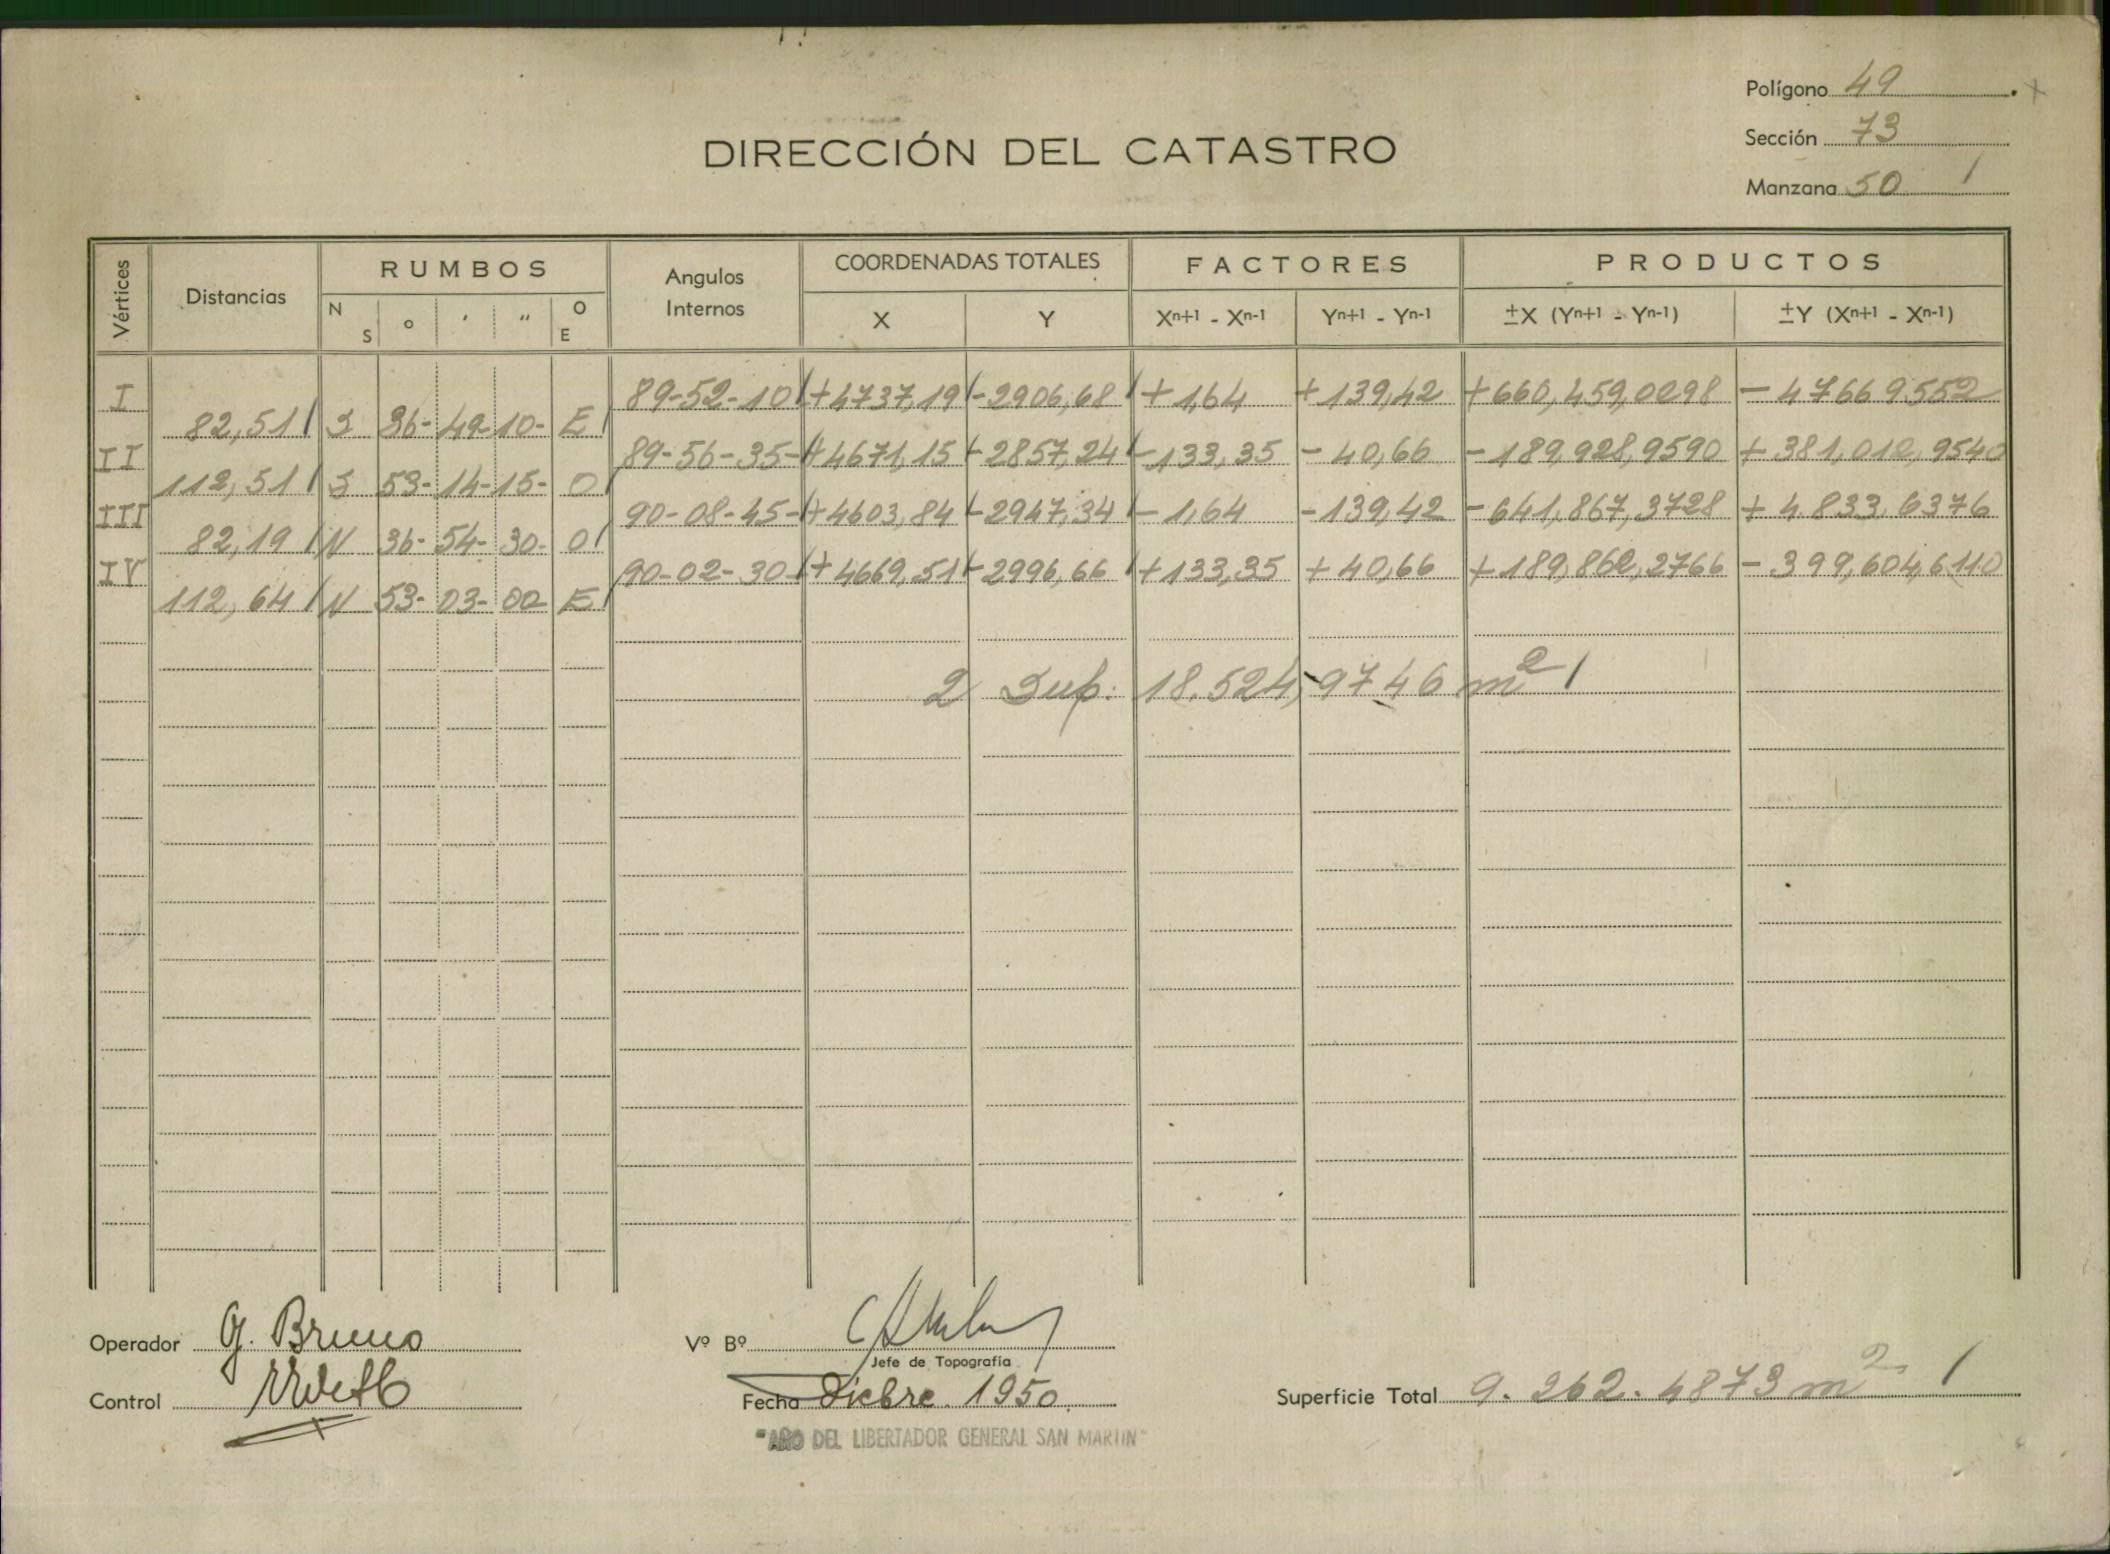 Polígono 49
Sección 73
Manzana 50
DIRECCIÓN DEL CATASTRO
Vértices Distancias RUMBOS Angulos Internos COORDENADAS TOTALES FACTORES PRODUCTOS
N S ° ′ ″ O E X Y Xⁿ⁺¹ - Xⁿ⁻¹ Yⁿ⁺¹ - Yⁿ⁻¹ ±X (Yⁿ⁺¹ - Yⁿ⁻¹) ±Y (Xⁿ⁺¹ - Xⁿ⁻¹)
I 89-52-10 +4737,19 -2906,68 +1,64 +139,42 +660,459,0298 - 4766 9552
82,51 S 36- 49- 10- E
II 89-56-35- +4671,15 -2857,24 -133,35 - 40,66 - 189,928,9590 + 381,012,9540
112,51 S 53- 14- 15- O
III 90-08-45- +4603,84 -2947,34 - 1,64 -139,42 -641,867,3728 + 4,833,6376
82,19 N 36- 54- 30- O
IV 90-02-30 +4669,51 -2996,66 +133,35 +40,66 +189,862,2766 - 399,604,6110
112,64 N 53- 03- 00 E
2 Sup. 18.524,9746 m²
Operador G. Bruno
Vº Bº
Jefe de Topografía
Control
Fecha Dicbre. 1950.
Superficie Total 9.262.4873 m²
"AÑO DEL LIBERTADOR GENERAL SAN MARTIN"